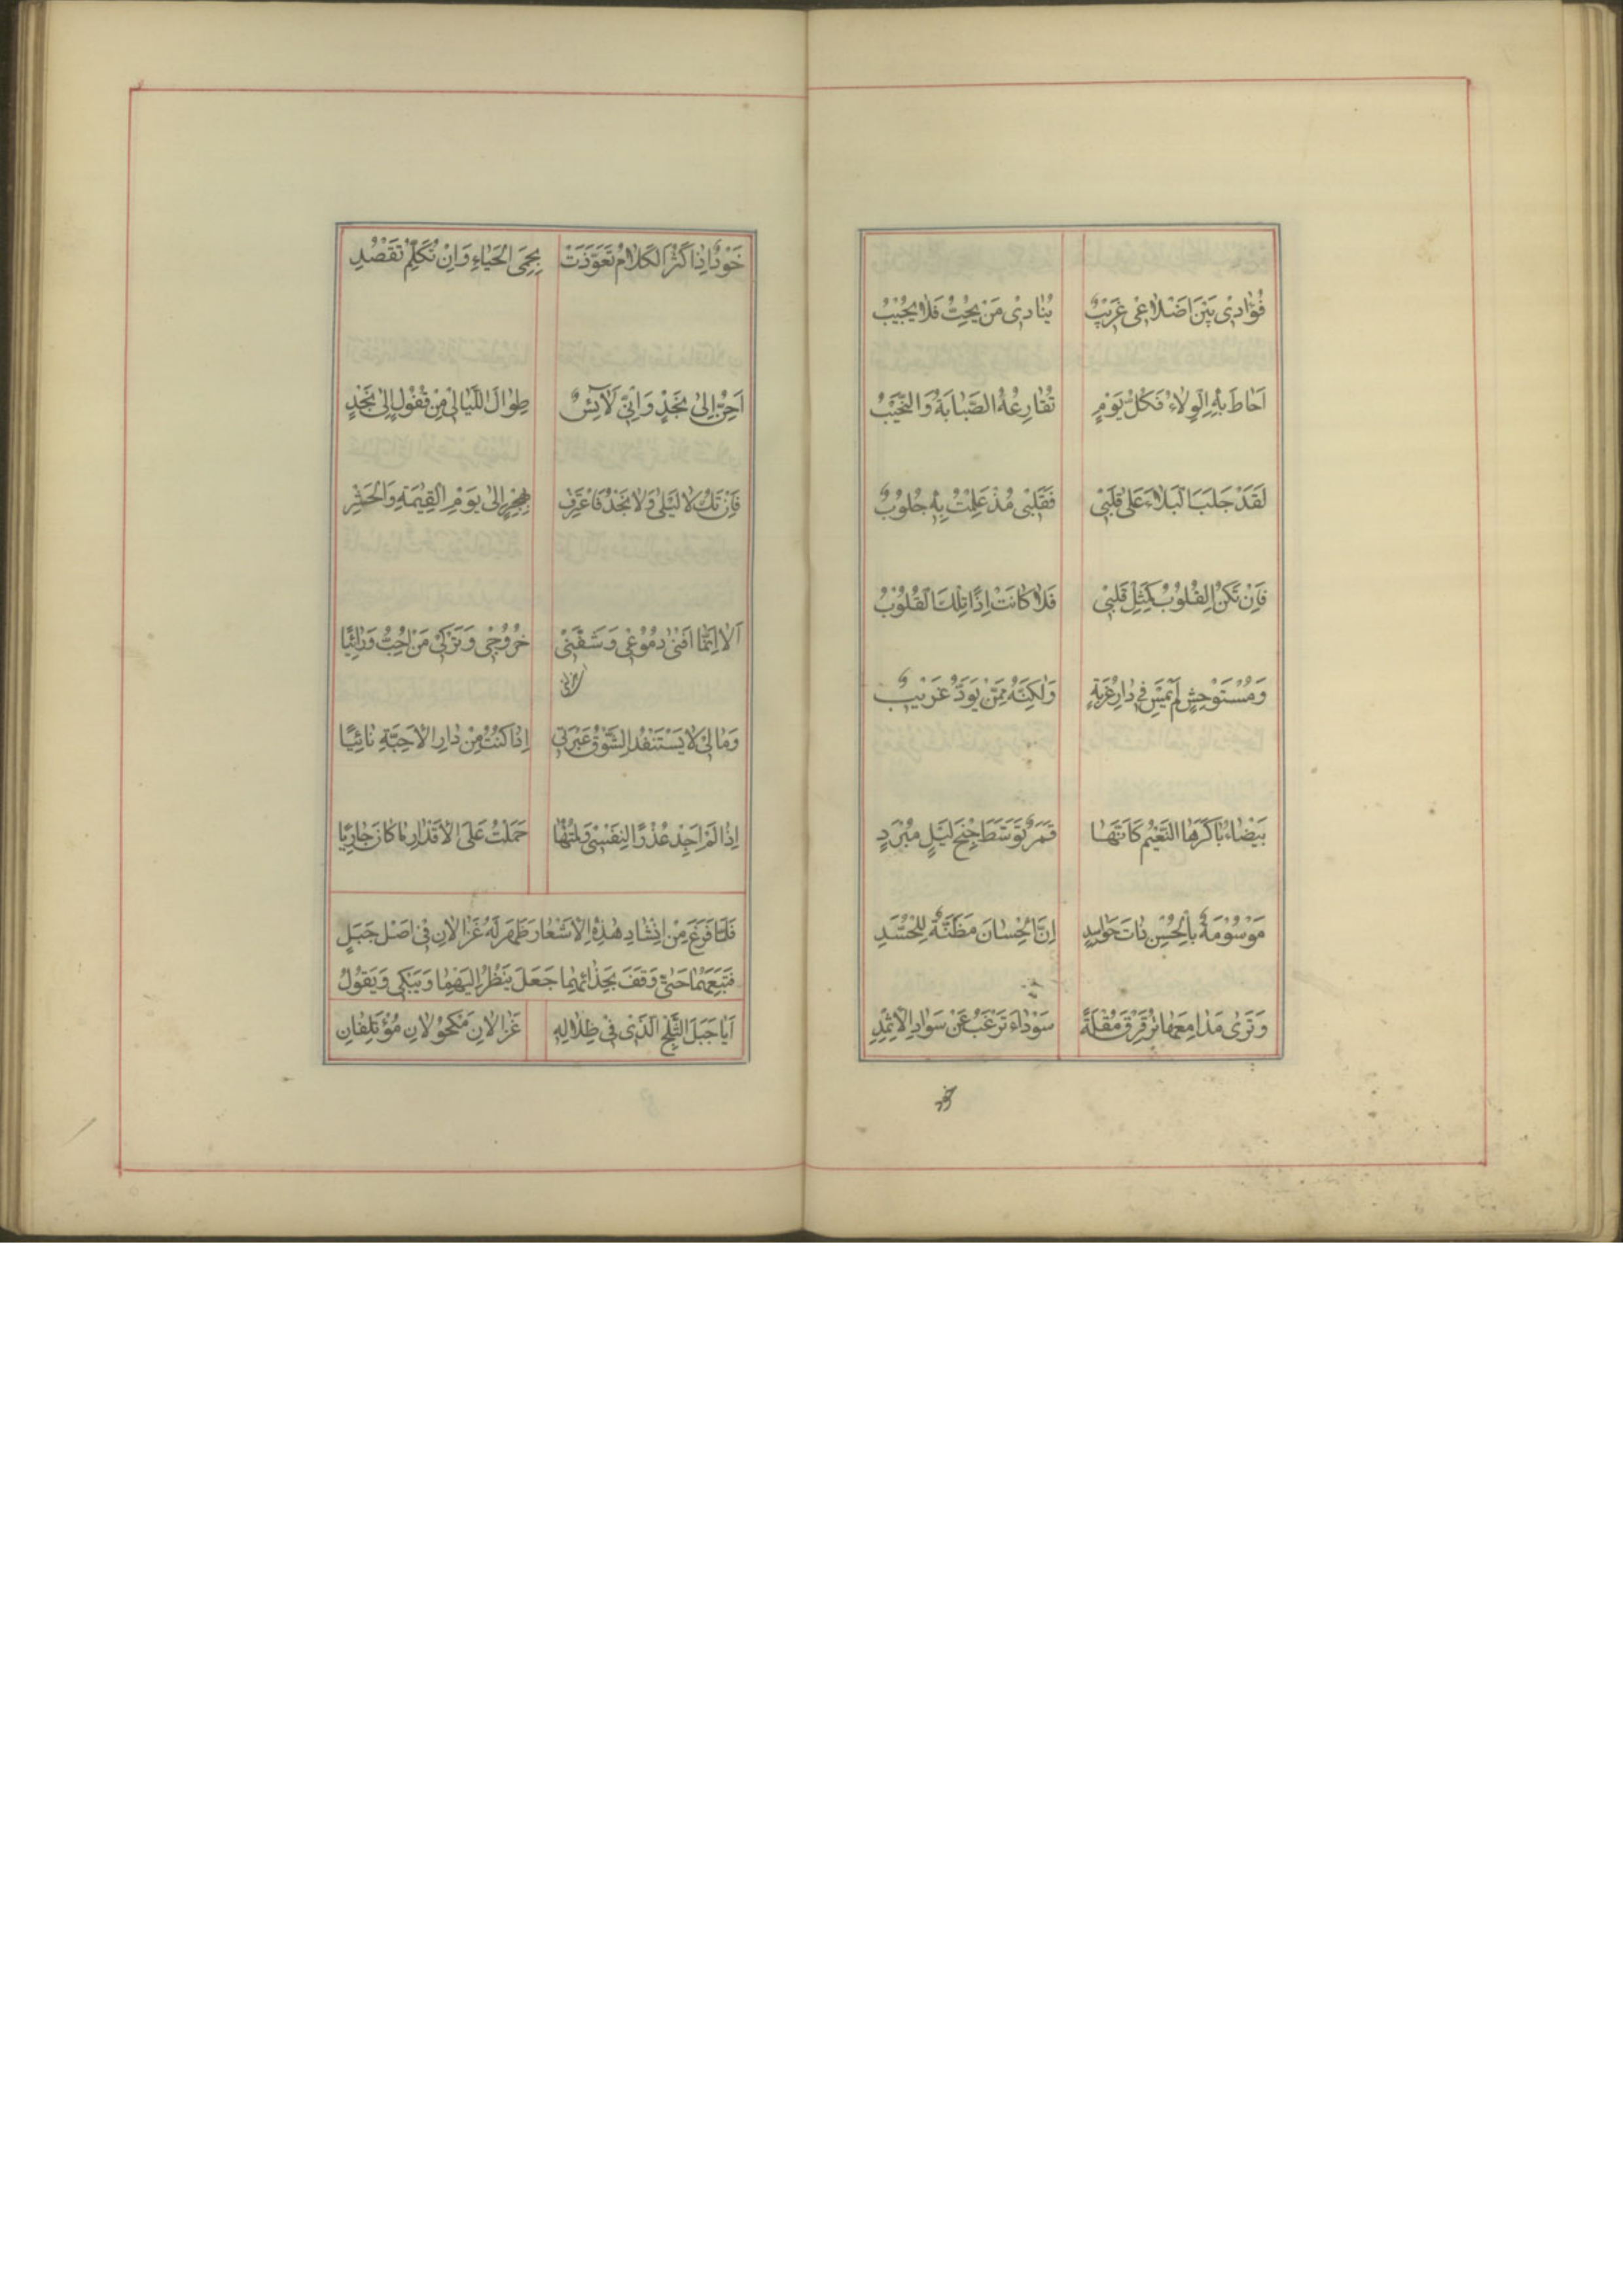 فُؤٰادِىْ بَيْنَ اَضْلاٰعِى غَرٖيْبٌ يُنٰادِىْ مَنْ يُحِبُّ فَلاٰ يُجٖيْبُ
اَحٰاطَ بِهِ الْوِلاٰءُ فَكُلُّ يَوْمٍ تُقٰارِعُهُ الصَّبٰابَةُ وَالنَّحٖيْبُ
لَقَدْ جَلَبَ الْبَلاٰءَ عَلىٰ قَلْبٖىْ فَقَلْبٖى مُذْ عَلِمْتُ بِهٖ جُلُوْبٌ
فَاِنْ تَكُنِ الْقُلُوْبُ كَمِثْلِ قَلْبٖىْ فَلاٰ كٰانَتْ اِذًا تِلْكَ الْقُلُوْبُ
وَمُسْتَوْحِشٍ لَمْ يُمْسِ فٖى دٰارِ غُرْبَةٍ وَلٰكِنَّهُ مِمَّنْ يَوَدُّ غَرٖيْبٌ
بَيْضٰاءُ بٰاكَرَهَا النَّعٖيْمُ كَاَنَّهٰا قَمَرٌ تَوَسَّطَ جِنْحَ لَيْلٍ مُبْرَدٍ
مَوْسُوْمَةٌ بِالْحُسْنِ ذٰاتُ حَوٰاسِدٍ اِنَّ الْحِسٰانَ مَظَنَّةٌ لِلْحُسَّدِ
وَتَرٰى مَدٰامِعَهٰا تُرَقْرِقُ مُقْلَةً سَوْدٰاءَ تَرْغَبُ عَنْ سَوٰادِ الْاِثْمِدِ
خود
خَوْدٌ اِذٰا كَثُرَ الْكَلاٰمُ تَعَوَّذَتْ بِحِمَى الْحَيٰاءِ وَاِنْ تُكَلِّمْ تَقْصُدِ
اَحِنُّ اِلىٰ نَجْدٍ وَاِنّٖى لَآئِسٌ طِوٰالَ اللَّيٰالٖى مِنْ قُفُوْلٍ اِلىٰ نَجْدٍ
فَاِنْ تَكُ لاٰ لَيْلىٰ وَلاٰ نَجْدُ فَاعْتَرِفْ بِهِجْرٍ اِلىٰ يَوْمِ الْقِيٰمَةِ وَالْحَشْرِ
اَلاٰ اِنَّمٰا اَفْنىٰ دُمُوْعٖى وَشَفَّنٖىْ خُرُوْجٖى وَتَرْكٖى مَنْ اُحِبُّ وَرٰائِيًا
وَمٰا لٖىْ لاٰ يَسْتَنْفِدُ الشَّوْقُ عَبْرَتٖى اِذٰا كُنْتُ مِنْ دٰارِ الْاَحِبَّةِ نٰائِيًا
اِذٰا لَمْ اَجِدْ عُذْرًا لِنَفْسٖىْ وَلُمْتُهٰا حَمَلْتُ عَلَى الْاَقْدٰارِ مٰا كٰانَ جٰارِيًا
فَلَمّٰا فَرَغَ مِنْ اِنْشٰادِ هٰذِهِ الْاَشْعٰارِ ظَهَرَ لَهُ غَزٰالاٰنِ فٖى اَصْلِ جَبَلٍ
فَتَبِعَهُمٰا حَتّىٰ وَقَفَ بِحِذٰائِهِمٰا جَعَلَ يَنْظُرُ اِلَيْهِمٰا وَيَبْكٖى وَيَقُوْلُ
اَيٰا جَبَلَ الثَّلْجِ الَّذٖى فٖى ظِلاٰلِهٖ غَزٰالاٰنِ مَكْحُوْلاٰنِ مُؤْتَلِفٰانِ